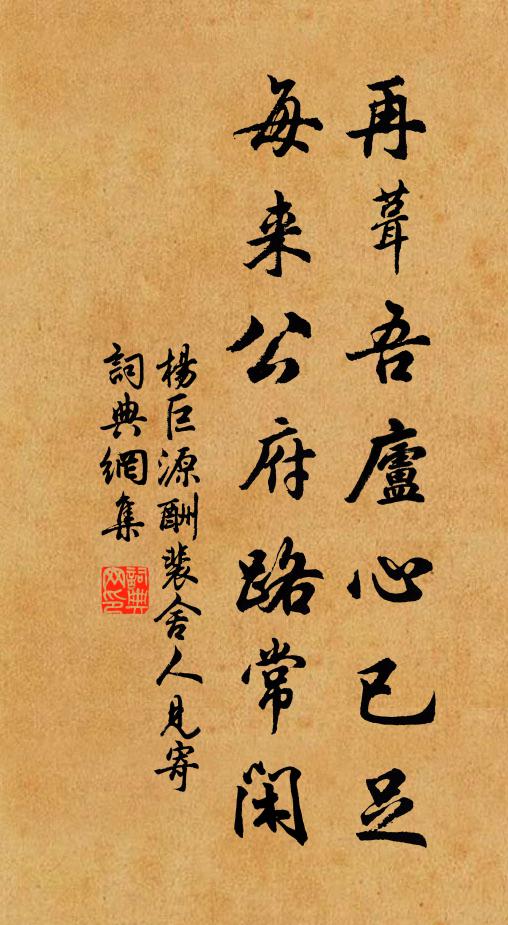 再葺吾廬心已足
每来公府路常閑
楊巨源酬裴舍人見寄
詞典網集
詞典网印